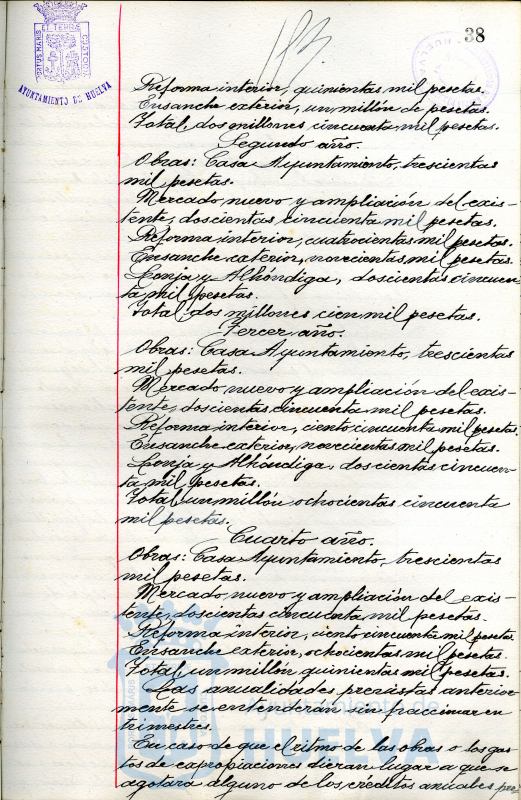 38
PORTUS MARIS ET TERRÆ CUSTODIA
AYUNTAMIENTO DE HUELVA
Reforma interior, quinientas mil pesetas.
Ensanche exterior, un millón de pesetas.
Total, dos millones cincuenta mil pesetas.
Segundo año.
Obras: Casa Ayuntamiento, trescientas
mil pesetas.
Mercado, nuevo y ampliación del exis-
tente, doscientas cincuenta mil pesetas.
Reforma interior, cuatrocientas mil pesetas.
Ensanche exterior, novecientas mil pesetas.
Lonja y Alhóndiga, doscientas cincuen-
ta mil pesetas.
Total, dos millones cien mil pesetas.
Tercer año.
Obras: Casa Ayuntamiento, trescientas
mil pesetas.
Mercado, nuevo y ampliación del exis-
tente, doscientas cincuenta mil pesetas.
Reforma interior, ciento cincuenta mil pesetas.
Ensanche exterior, novecientas mil pesetas.
Lonja y Alhóndiga, doscientas cincuen-
ta mil pesetas.
Total un millón ochocientas cincuenta
mil pesetas.
Cuarto año.
Obras: Casa Ayuntamiento, trescientas
mil pesetas.
Mercado, nuevo y ampliación del exis-
tente, doscientas cincuenta mil pesetas.
Reforma interior, ciento cincuenta mil pesetas.
Ensanche exterior, ochocientas mil pesetas.
Total un millón quinientas mil pesetas.
Las anualidades previstas anterior-
mente se entenderán sin fraccionar en
trimestres.
En caso de que el ritmo de las obras o los gas-
tos de expropiaciones dieran lugar a que se
agotara alguno de los créditos anuales pre
Ayuntamiento de
HUELVA